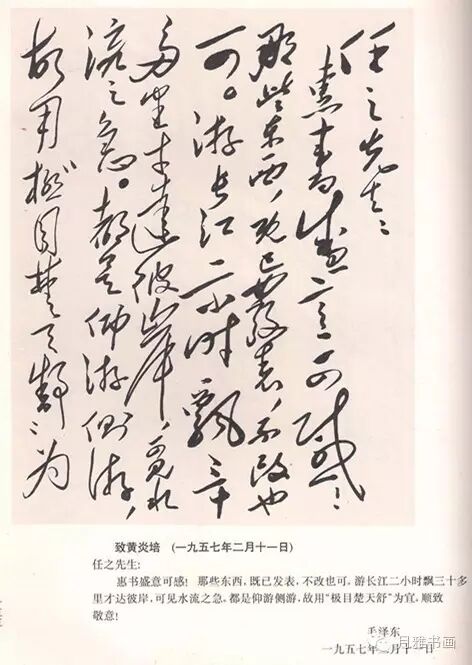 任之先生：
惠書盛意可感！
那些东西，既已發表，不改也
可。游长江二小时飘三十
多里才達彼岸，可见水
流之急。都是仰游侧游，
故用极目楚天舒为
致黄炎培 (一九五七年二月十一日)
任之先生：
惠书盛意可感！那些东西，既已发表，不改也可。游长江二小时飘三十多
里才达彼岸，可见水流之急。都是仰游侧游，故用“极目楚天舒”为宜，顺致
敬意！
毛泽东
一九五七年二月十一日
月雅书画